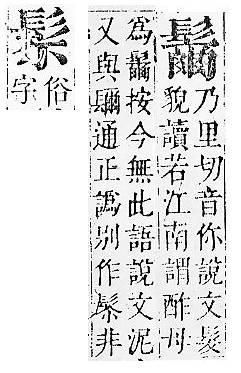 𩯨
乃里切音你說文髮
貌讀若江南謂酢母
為𩯨按今無此語說文泥
又與镾通正譌別作非
俗
字